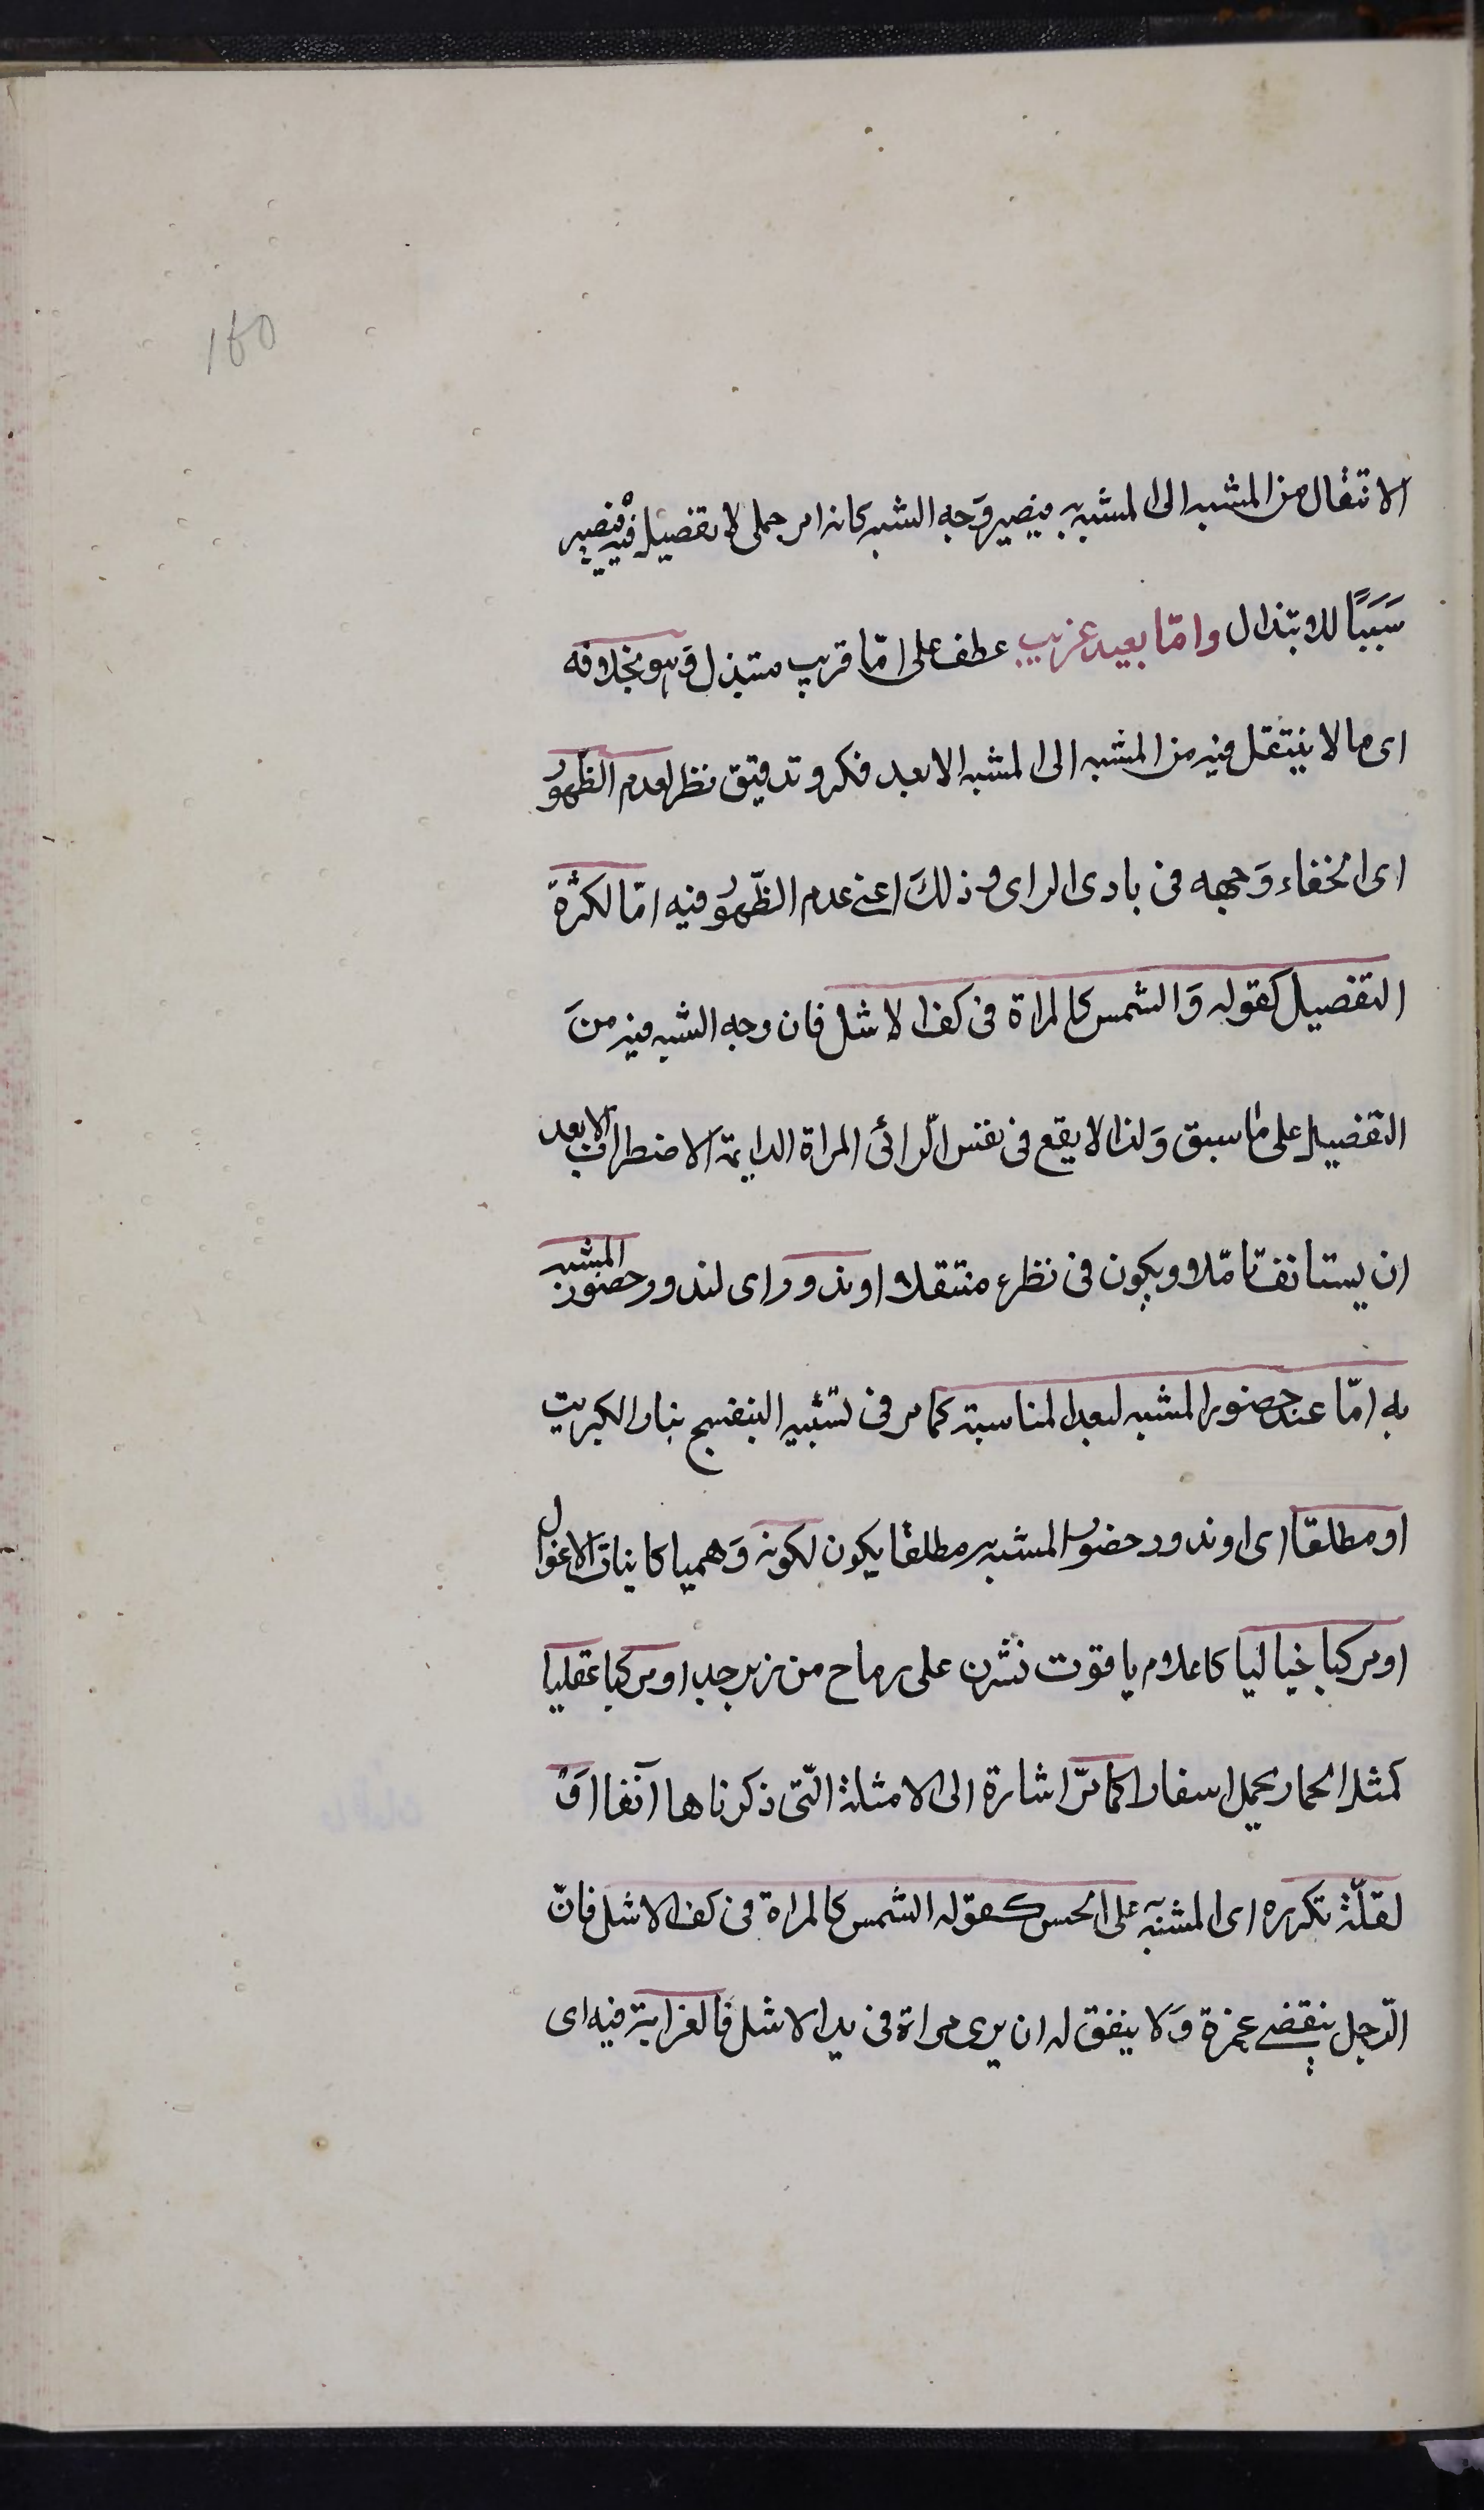 160
الانتقال من المشبه الى المشبه به فيصير وَجه الشبه كانه امر جملى لا تفصيل فيه فيصير
سَبَبًا للابتذال وامّا بعيد غريب عطف على امّا قريب مبتذل وَهو بخلافه
اى ما لا ينتقل فيه من المشبه الى المشبه الا بعد فكر وتدقيق نظر لعدم الظهور
اى لخفاء وَجهه فى بادى الراى وذلكَ اعنى عدم الظّهور فيه امّا لكثرة
التفصيل كقوله وَالشمس كالمراة فى كف الاشل فان وجه الشبه فيه منَ
التفصيل على ما سبق وَلذا لا يقع فى نفس الرّائى المراة الدايمة الاضطراب الا بعد
ان يستانف تامّلا ويكون فى نظره متتقلا او ندور اى لندور حضور المشبه
به امّا عند حضور المشبه لبعد المناسبة كما مر فى تشبيه البنفسج بنار الكبريت
او مطلقا اى او ندور حضور المشبه به مطلقا يكون لكونه وَهميا كانيابَ الاغوال
او مركبا خياليا كاعلام ياقوت نشرن على رماح من زبرجد او مركبا عقليا
كمثل الحمار يحمل اسفارا كما مرّ اشارة الى الامثلة الّتى ذكرناها آنفا اوَ
لقلّة تكرره اى المشبّه على الحس كقوله الشمس كالمراة فى كف الاشل فانّ
الرّجل ينقضى عمره وَلا يتفق له ان يرى مراة فى يد الاشل فالغرابة فيه اى